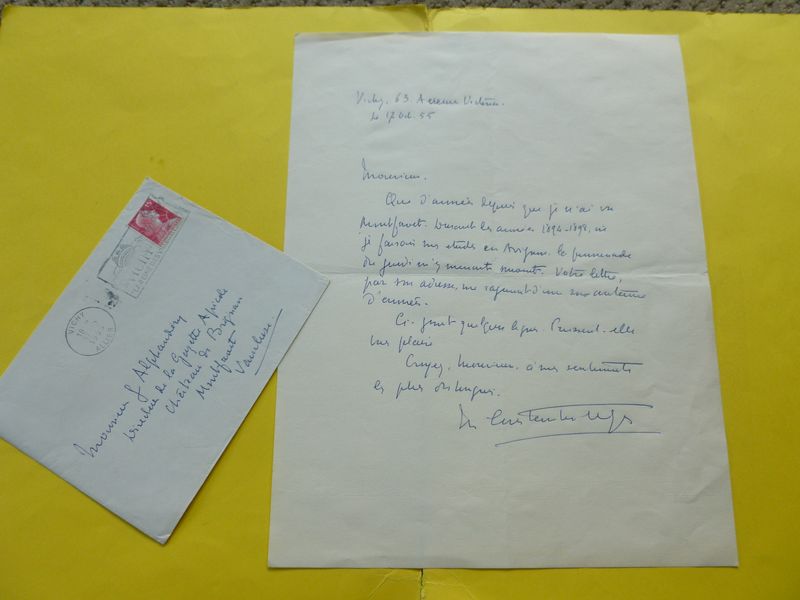 Vichy. 63. Avenue Victoria.
le 17 Oct. 55
Monsieur.
Que d'années depuis que je n'ai vu
Montfavet. Durant les années 1894-1898, où
je faisais mes études en Avignon, la promenade
du jeudi m'y menait souvent. Votre lettre,
par son adresse, me rajeunit d'une soixantaine
d'années.
Ci-joint quelques lignes. Puissent-elles
vous plaire
Croyez, Monsieur, à mes sentiments
les plus distingués.
VICHY
ALLIER
Monsieur G Alphandéry
Directeur de la Gazette Apicole
Château de Brignan
Montfavet
Vaucluse